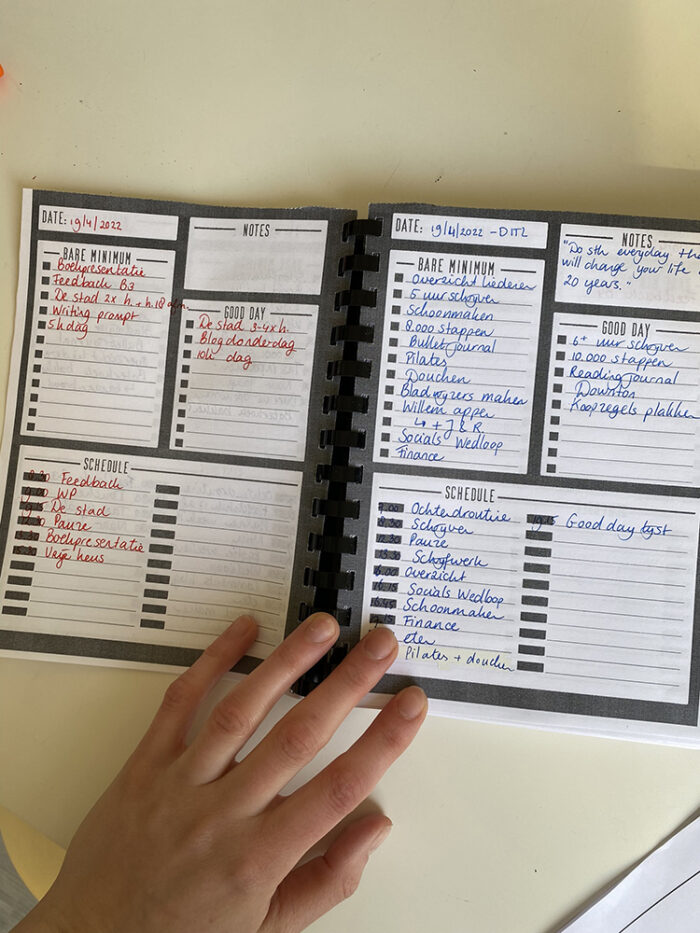 DATE: 19/4/2022
NOTES
BARE MINIMUM
Boekpresentatie
Feedback B3
De stad 2x h. + h.18 afm.
Writing prompt
5k dag
GOOD DAY
De stad 3-4x h.
Blog donderdag
10k dag
SCHEDULE
8.30 Feedback
9.00 WP
9.15 De stad
12.30 Pauze
13.30 Boekpresentatie
15.30 Vrije keus
DATE: 19/4/2022 - DITL
NOTES
"Do sth everyday tha
will change your life
20 years."
BARE MINIMUM
Overzicht liederen
5 uur schrijven
Schoonmaken
8.000 stappen
Bullet journal
Pilates
Douchen
Bladwijzers maken
Willem appen
↳ + J & R.
Socials Wedloop
Finance
GOOD DAY
6+ uur schrijven
10.000 stappen
Reading journal
Downton
Koopzegels plakken
SCHEDULE
Ochtendroutine
8.30 Schrijven
12.30 Pauze
13.30 Schrijfwerk
16.00 Overzicht
16.15 Socials Wedloop
16.45 Schoonmaken
Finance
eten
Pilates + douchen
19.15 Good day lijst